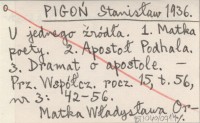 PIGOŃ Stanisław 1936.
U jednego źródła. 1. Matka
poety. 2. Apostoł Podhala.
3. Dramat o apostole. –
Prz. Współcz. rocz. 15, t. 56,
nr 3: 42-56.
Matka Władysława Or-